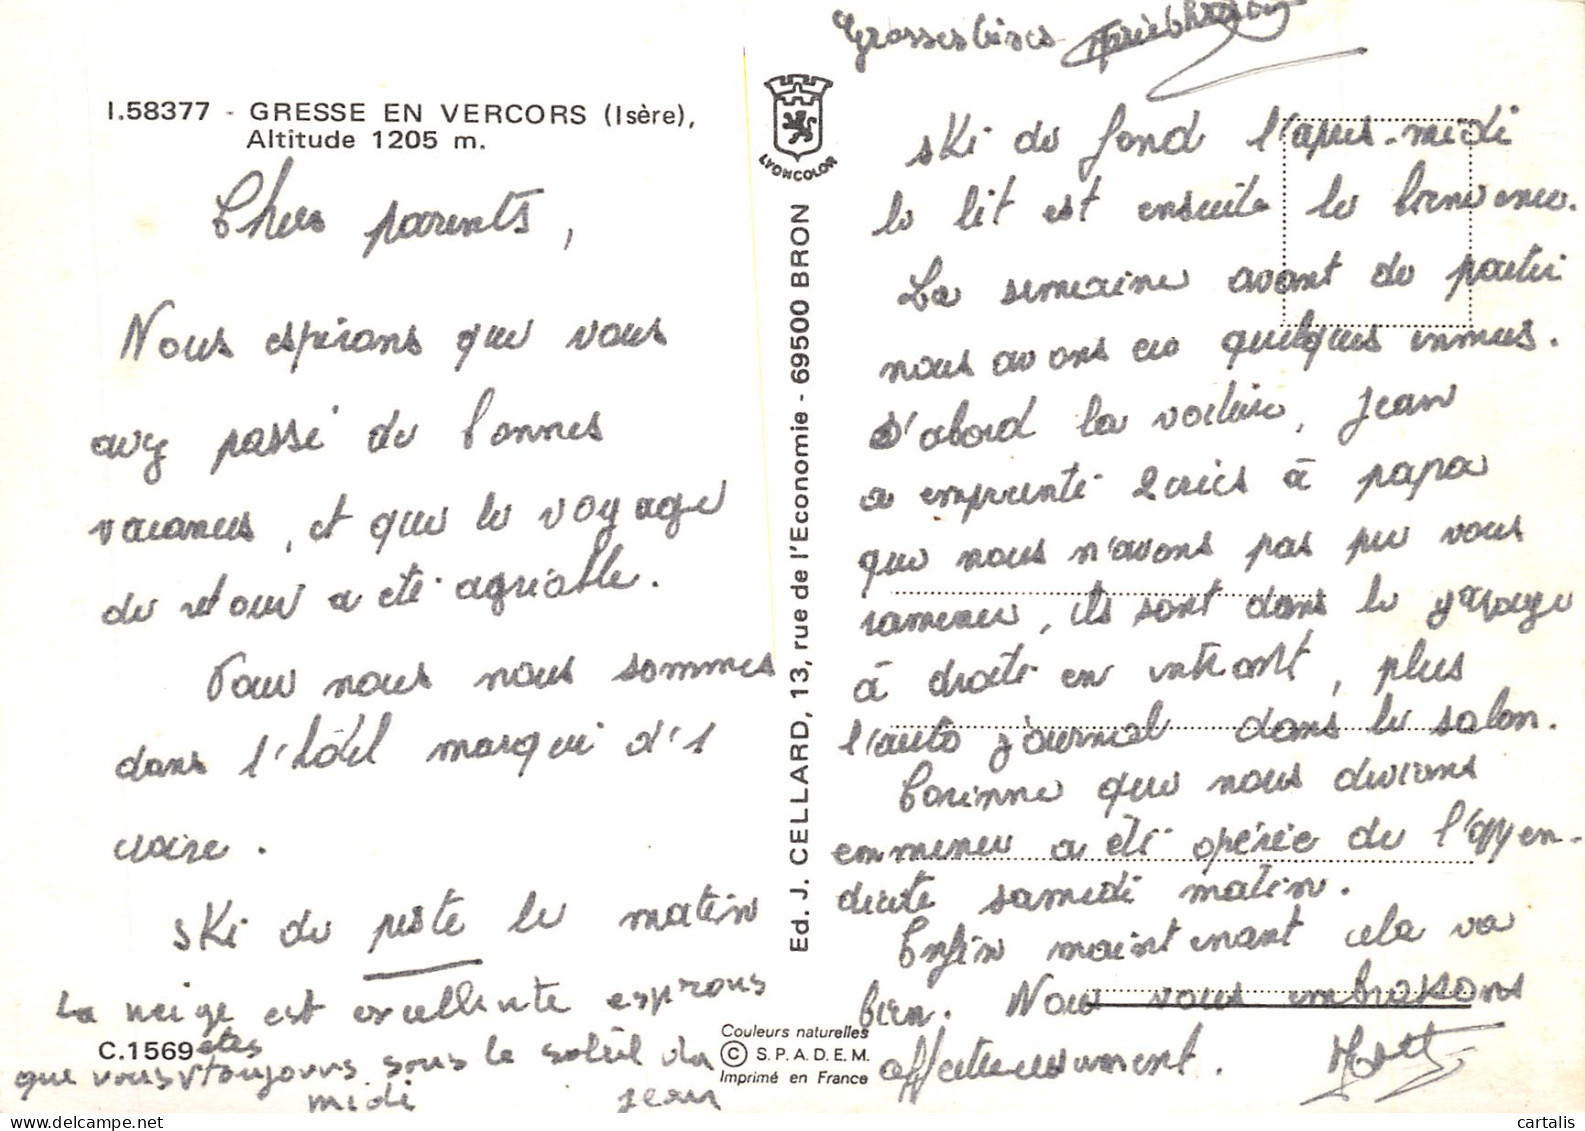 I.58377 - GRESSE EN VERCORS (Isère),
Altitude 1205 m.
Chers parents,
Nous espérons que vous
avez passé de bonnes
vacances, et que le voyage
de retour a été agréable.
Pour nous nous sommes
dans l'hôtel marqué d'1
croix.
Ski de piste le matin
La neige est excellente esprons
que vous êtes toujours sous le soleil du
midi Jean
C.1569
LYONCOLOR
Ed. J. CELLARD, 13, rue de l'Economie - 69500 BRON
Couleurs naturelles
© S.P.A.D.E.M.
Imprimé en France
Grosses bises
ski de fond l'après-midi
le lit est ensuite le bienvenu.
La semaine avant de partir
nous avons eu quelques ennuis.
D'abord la voiture, Jean
a emprunté 2 crics à papa
que nous n'avons pas pu vous
ramener, ils sont dans le garage
à droite en entrant, plus
l'auto journal dans le salon.
Corinne que nous devions
emmener a été opérée de l'appen-
dicite samedi matin.
Enfin maintenant cela va
bien. Nous vous embrassons
affectueusement.